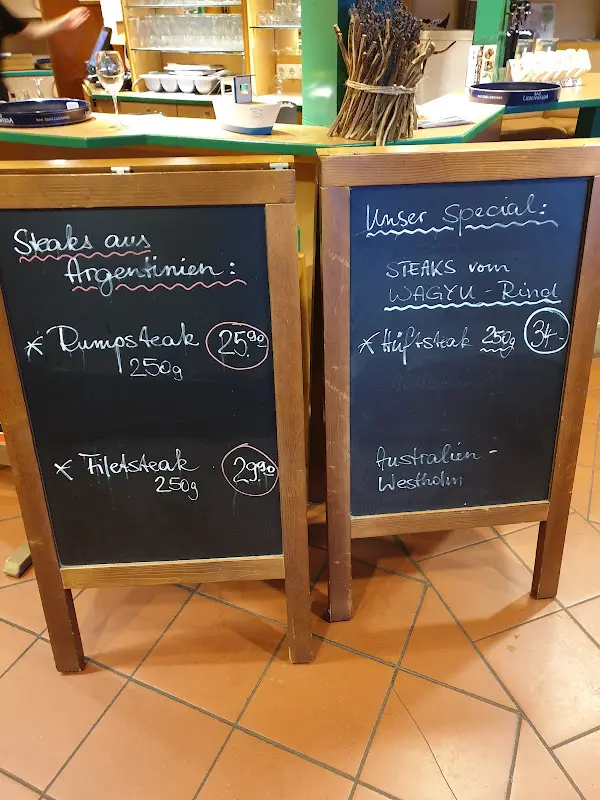 Steaks aus
Argentinien:
* Rumpsteak 25.90
250g
* Filetsteak 29.90
250g
Unser Special:
STEAKS vom
WAGYU - Rind
* Hüftsteak 250g 34.-
Australien -
Westholm